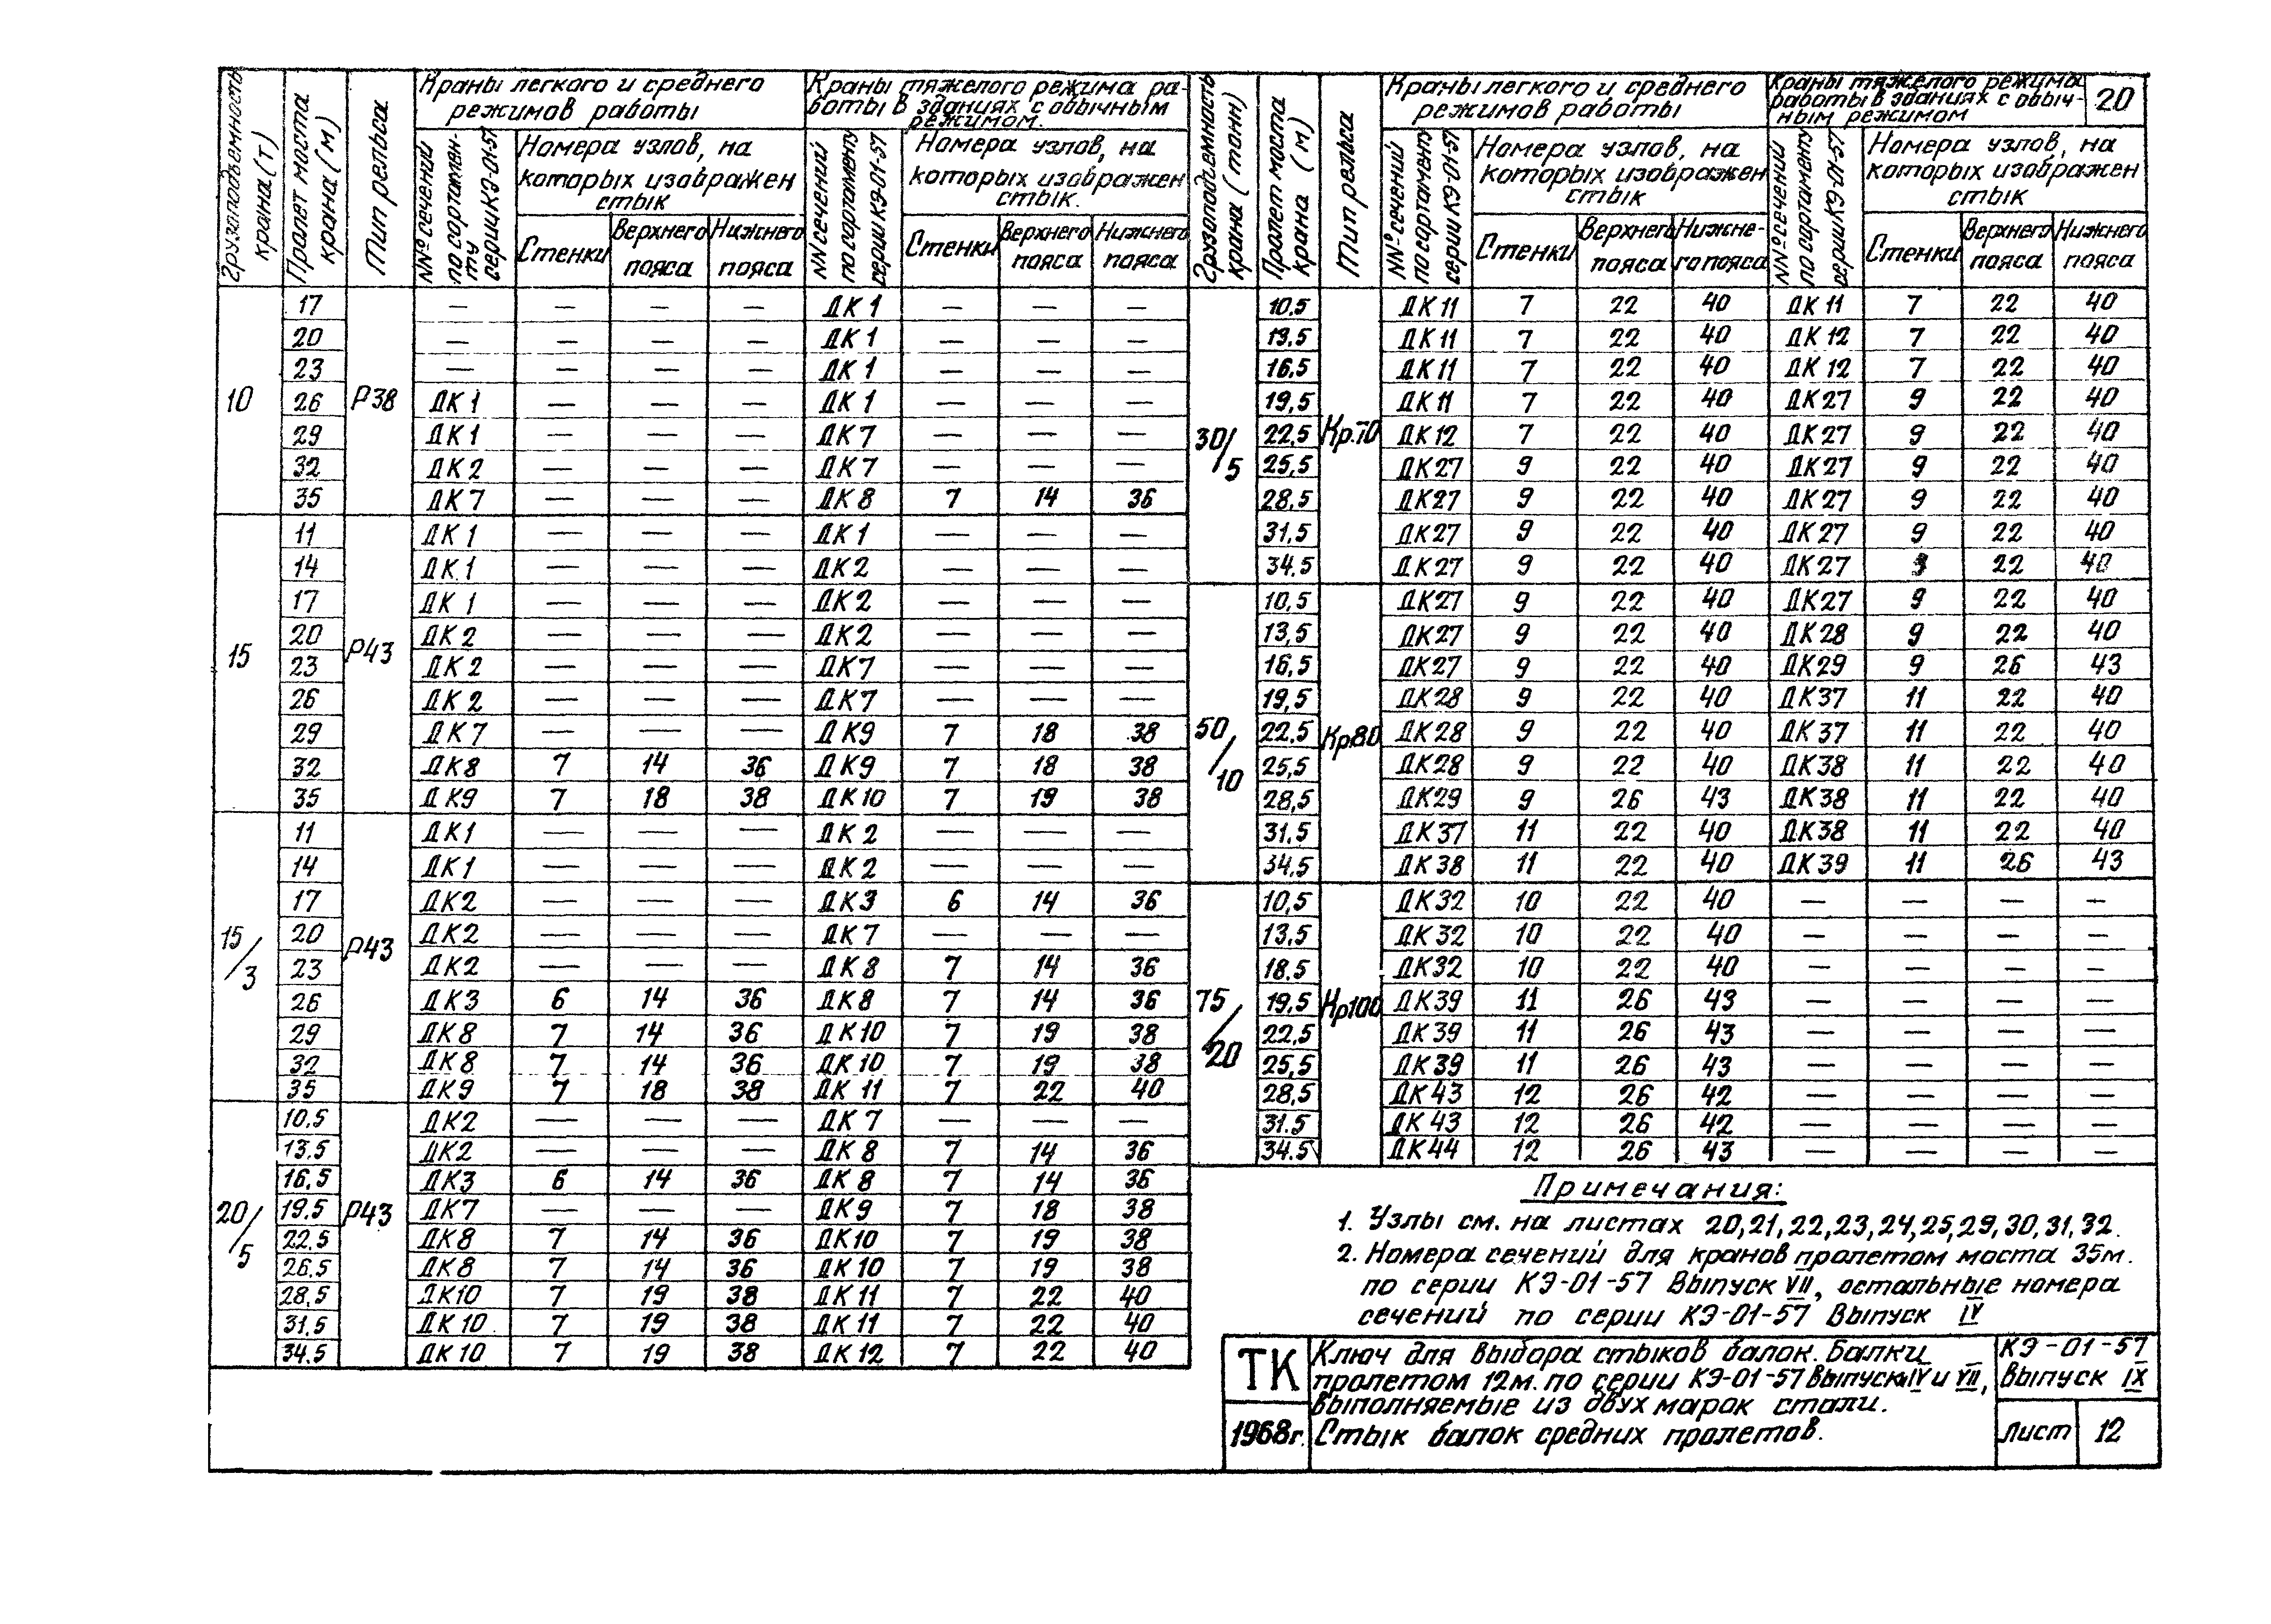 20
Грузоподъемность крана (т)
Пролет моста крана (м)
Тип рельса
Краны легкого и среднего
режимов работы
NNº сечений по сортамен-ту серии КЭ-01-57
Номера узлов, на
которых изображен
стык
Стенки
Верхнего
пояса
Нижнего
пояса
Краны тяжелого режима ра-
боты в зданиях с обычным
режимом.
NN сечений по сортаменту серии КЭ-01-57
Номера узлов, на
которых изображен
стык.
Стенки
Верхнего
пояса
Нижнего
пояса
10 Р38
17 — — — — ДК 1 — — —
20 — — — — ДК 1 — — —
23 — — — — ДК 1 — — —
26 ДК 1 — — — ДК 1 — — —
29 ДК 1 — — — ДК 7 — — —
32 ДК 2 — — — ДК 7 — — —
35 ДК 7 — — — ДК 8 7 14 36
15 Р43
11 ДК 1 — — — ДК 1 — — —
14 ДК 1 — — — ДК 2 — — —
17 ДК 1 — — — ДК 2 — — —
20 ДК 2 — — — ДК 2 — — —
23 ДК 2 — — — ДК 7 — — —
26 ДК 2 — — — ДК 7 — — —
29 ДК 7 — — — ДК 9 7 18 38
32 ДК 8 7 14 36 ДК 9 7 18 38
35 ДК 9 7 18 38 ДК 10 7 19 38
15/3 Р43
11 ДК 1 — — — ДК 2 — — —
14 ДК 1 — — — ДК 2 — — —
17 ДК 2 — — — ДК 3 6 14 36
20 ДК 2 — — — ДК 7 — — —
23 ДК 2 — — — ДК 8 7 14 36
26 ДК 3 6 14 36 ДК 8 7 14 36
29 ДК 8 7 14 36 ДК 10 7 19 38
32 ДК 8 7 14 36 ДК 10 7 19 38
35 ДК 9 7 18 38 ДК 11 7 22 40
20/5 Р43
10.5 ДК 2 — — — ДК 7 — — —
13.5 ДК 2 — — — ДК 8 7 14 36
16,5 ДК 3 6 14 36 ДК 8 7 14 36
19.5 ДК 7 — — — ДК 9 7 18 38
22.5 ДК 8 7 14 36 ДК 10 7 19 38
26.5 ДК 8 7 14 36 ДК 10 7 19 38
28,5 ДК 10 7 19 38 ДК 11 7 22 40
31.5 ДК 10 7 19 38 ДК 11 7 22 40
34.5 ДК 10 7 19 38 ДК 12 7 22 40
Грузоподъемность крана (тонн)
Пролет моста крана (м)
Тип рельса
Краны легкого и среднего
режимов работы
NNº сечений по сортаменту серии КЭ-01-57
Номера узлов, на
которых изображен
стык
Стенки
Верхнего
пояса
Нижне-
го пояса
Краны тяжелого режима
работы в зданиях с обыч-
ным режимом
NNº сечений по сортаменту серии КЭ-01-57
Номера узлов, на
которых изображен
стык
Стенки
Верхнего
пояса
Нижнего
пояса
30/5 Кр.70
10,5 ДК 11 7 22 40 ДК 11 7 22 40
13.5 ДК 11 7 22 40 ДК 12 7 22 40
16,5 ДК 11 7 22 40 ДК 12 7 22 40
19,5 ДК 11 7 22 40 ДК 27 9 22 40
22,5 ДК 12 7 22 40 ДК 27 9 22 40
25,5 ДК 27 9 22 40 ДК 27 9 22 40
28,5 ДК 27 9 22 40 ДК 27 9 22 40
31,5 ДК 27 9 22 40 ДК 27 9 22 40
34.5 ДК 27 9 22 40 ДК 27 22 40
50/10 Кр80
10,5 ДК 27 9 22 40 ДК 27 9 22 40
13,5 ДК 27 9 22 40 ДК 28 9 22 40
16,5 ДК 27 9 22 40 ДК 29 9 26 43
19,5 ДК 28 9 22 40 ДК 37 11 22 40
22,5 ДК 28 9 22 40 ДК 37 11 22 40
25,5 ДК 28 9 22 40 ДК 38 11 22 40
28,5 ДК 29 9 26 43 ДК 38 11 22 40
31,5 ДК 37 11 22 40 ДК 38 11 22 40
34,5 ДК 38 11 22 40 ДК 39 11 26 43
75/20 Кр100
10,5 ДК 32 10 22 40 — — — —
13,5 ДК 32 10 22 40 — — — —
18.5 ДК 32 10 22 40 — — — —
19,5 ДК 39 11 26 43 — — — —
22,5 ДК 39 11 26 43 — — — —
25,5 ДК 39 11 26 43 — — — —
28,5 ДК 43 12 26 42 — — — —
31.5 ДК 43 12 26 42 — — — —
34.5 ДК 44 12 26 43 — — — —
Примечания:
1. Узлы см. на листах 20,21,22,23,24,25,29,30,31,32.
2. Номера сечений для кранов пролетом моста 35м.
по серии КЭ-01-57 Выпуск VII, остальные номера
сечений по серии КЭ-01-57 Выпуск IV
ТК
1968г.
Ключ для выбора стыков балок. Балки
пролетом 12м. по серии КЭ-01-57 Выпуски IV и VII,
выполняемые из двух марок стали.
Стык балок средних пролетов.
КЭ-01-57
Выпуск IX
Лист 12